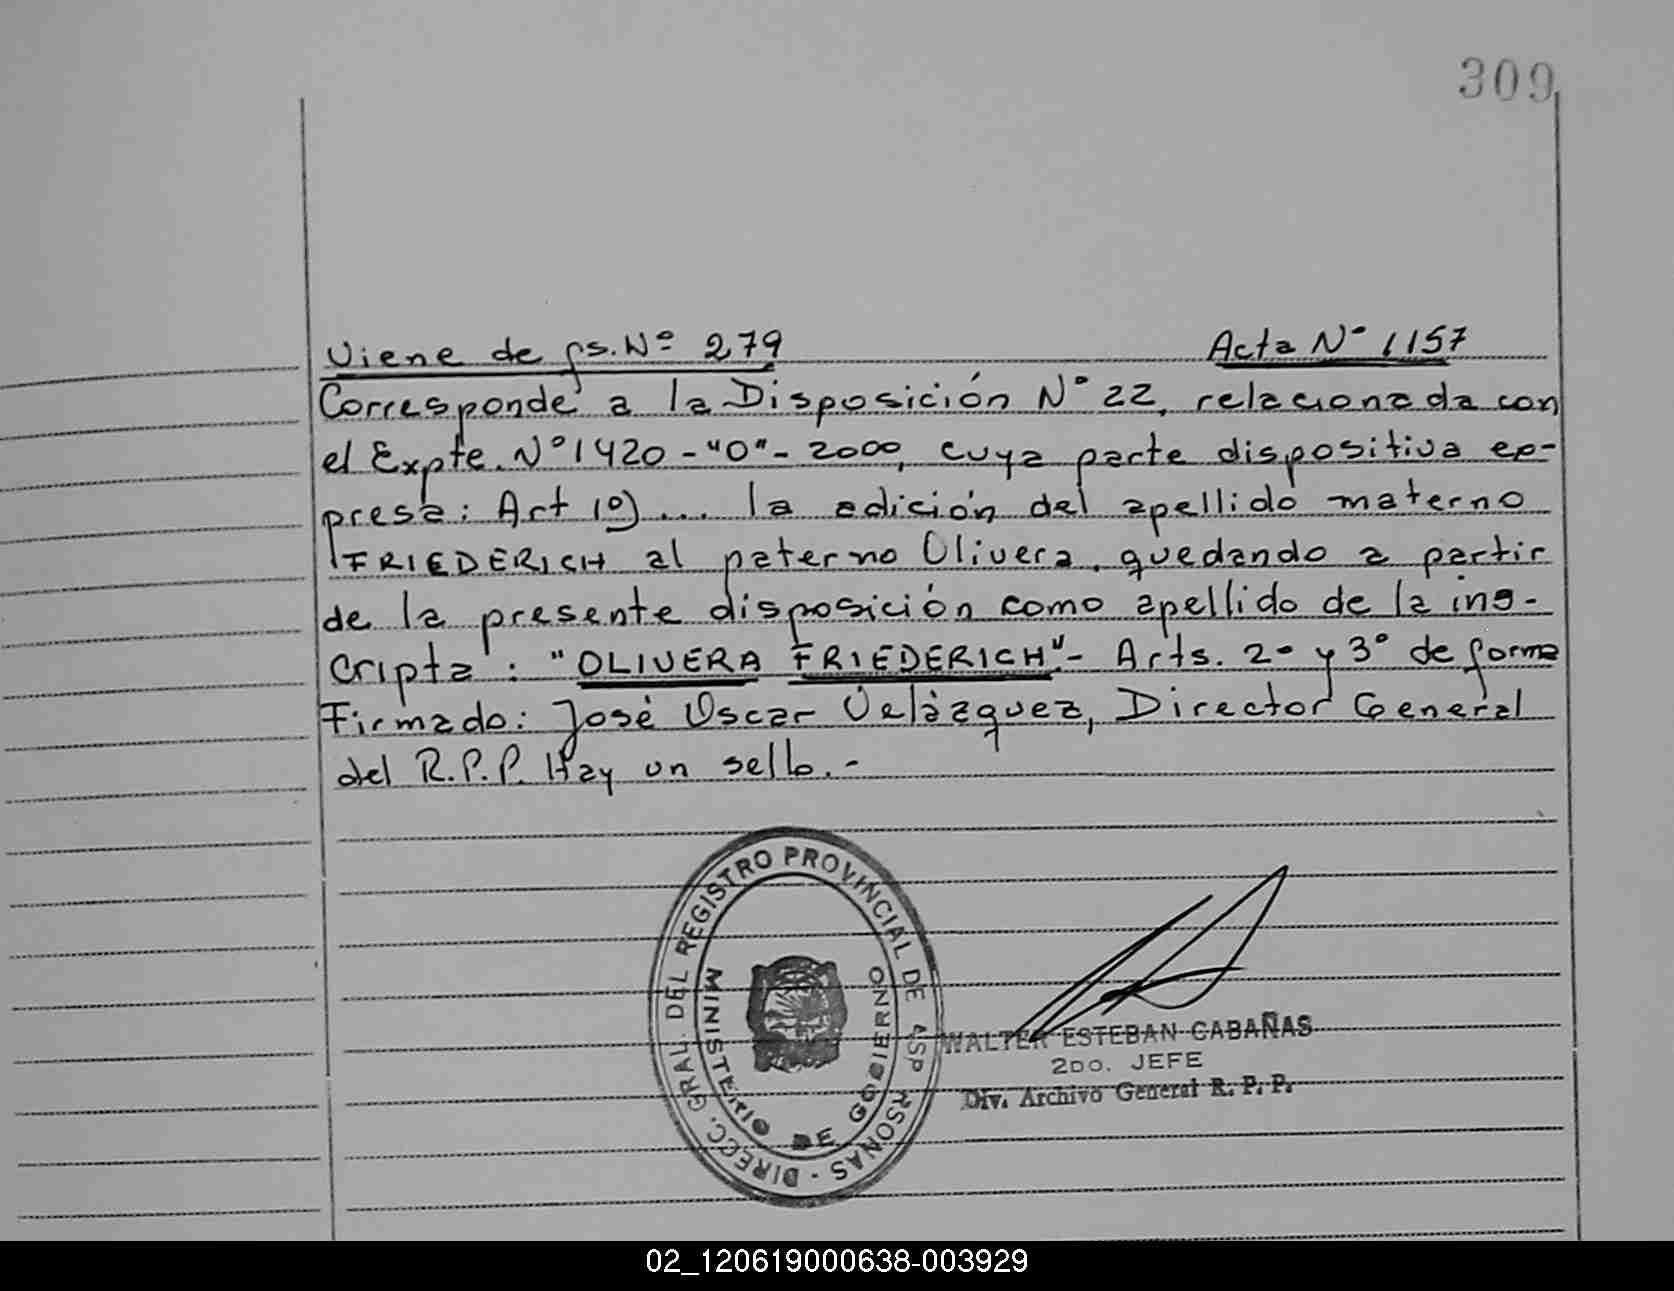 309
Viene de fs. Nº 279 Acta Nº 1157
Corresponde a la Disposición Nº 22, relacionada con
el Expte. Nº 1420-"O"-2000, cuya parte dispositiva ex-
presa: Art 1º)... la adición del apellido materno
FRIEDERICH al paterno Olivera, quedando a partir
de la presente disposición como apellido de la ins-
cripta: "OLIVERA FRIEDERICH".- Arts. 2º y 3º de forma
Firmado: José Oscar Velázquez, Director General
del R.P.P. Hay un sello.-
DIRECC. GRAL. DEL REGISTRO PROVINCIAL DE LAS P RSONAS -
MINISTERIO DE GOBIERNO
WALTER ESTEBAN CABAÑAS
2DO. JEFE
Div. Archivo General R. P. P.
02_120619000638-003929